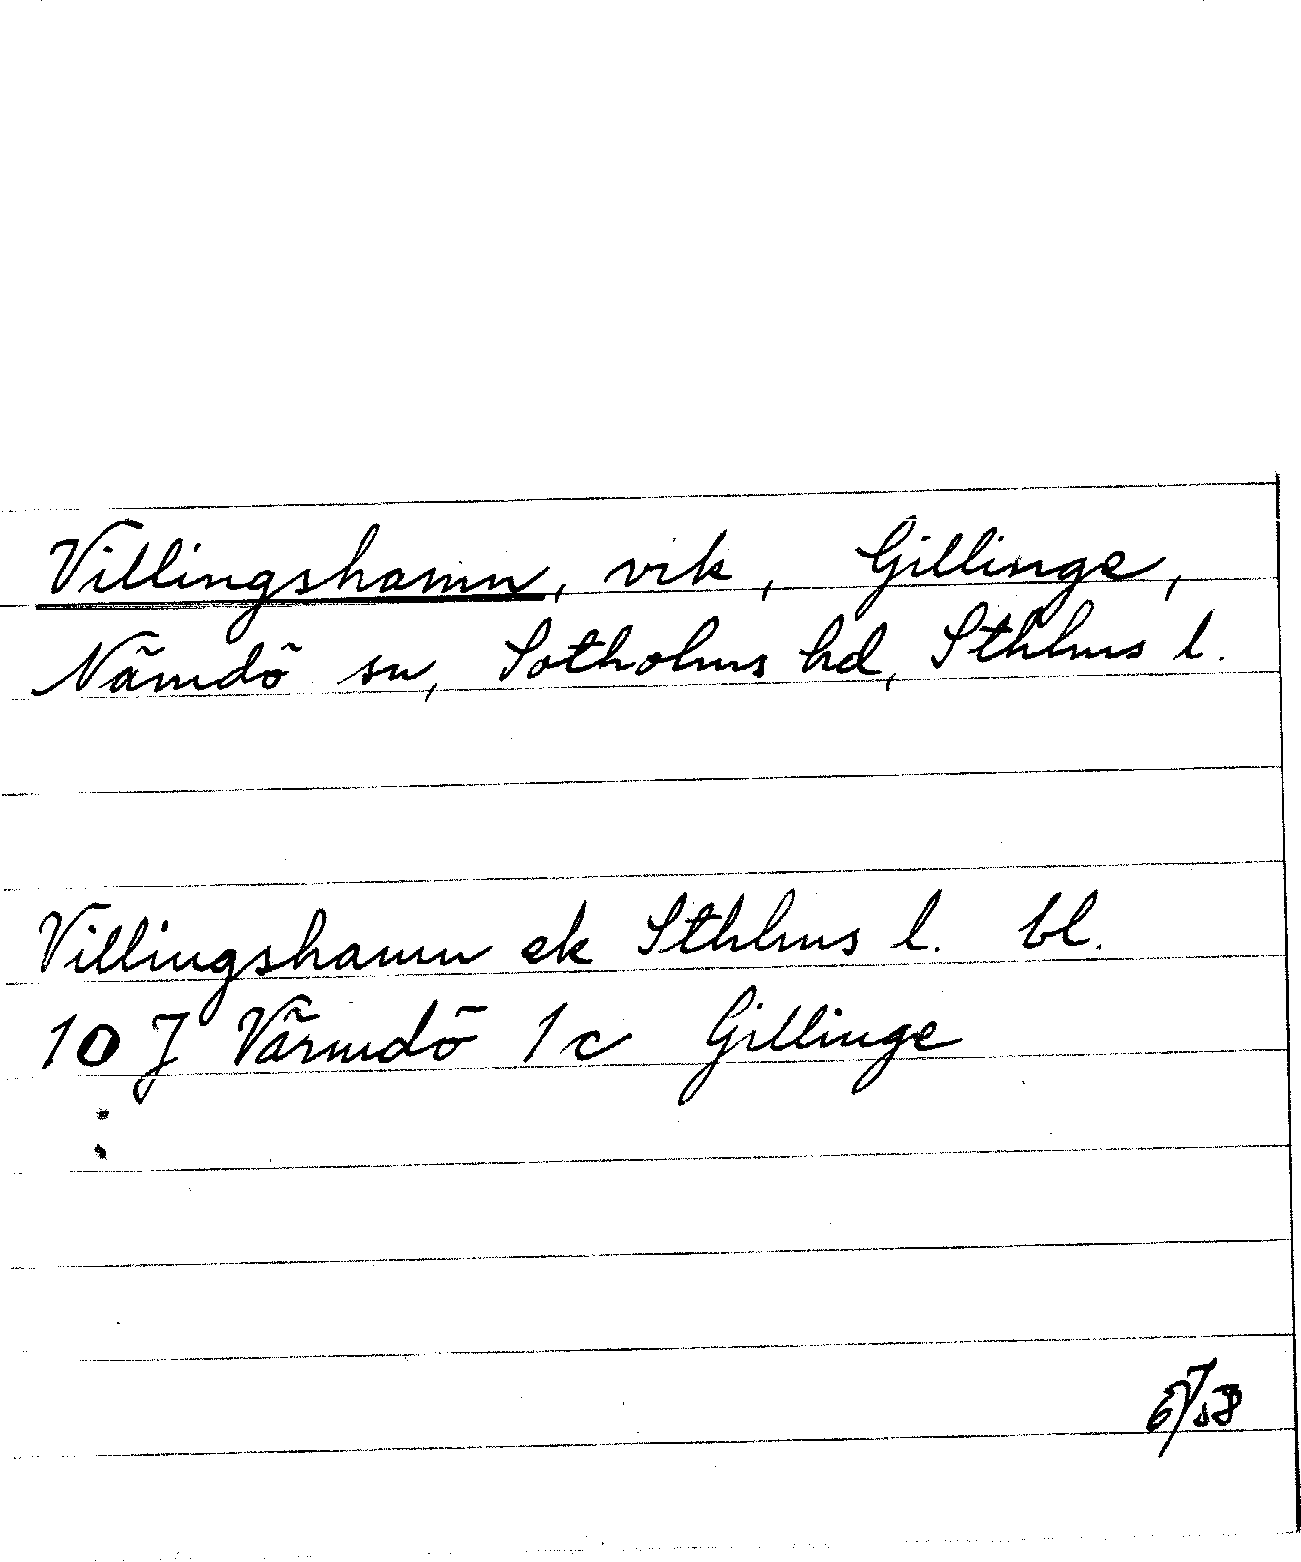 Villingshamn, vik, Gillinge,
Nämdö sn, Sotholms hd, Sthlms l.
Villingshamn ek Sthlms l. bl.
10 J Värmdö 1c Gillinge